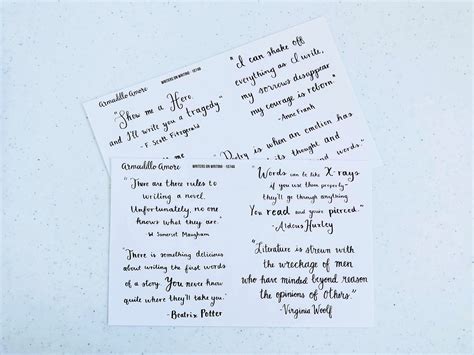 Armadillo Amore
WRITERS ON WRITING
"Show me a Hero,
and I'll write you a tragedy"
- F. Scott Fitzgerald
"I can shake off
everything as I write,
my sorrows disappear
my courage is reborn"
- Anne Frank
Poetry is when an emotion has
its thought and
words."
Armadillo Amore
WRITERS ON WRITING
"There are three rules to
writing a novel.
Unfortunately, no one
knows what they are."
W Somerset Maugham
"There is something delicious
about writing the first words
of a story. You never know
quite where they'll take you."
- Beatrix Potter
"Words can be like X-rays
if you use them properly-
they'll go through anything.
You read and you're pierced."
- Aldous Huxley
"Literature is strewn with
the wreckage of men
who have minded beyond reason
the opinions of others."
- Virginia Woolf